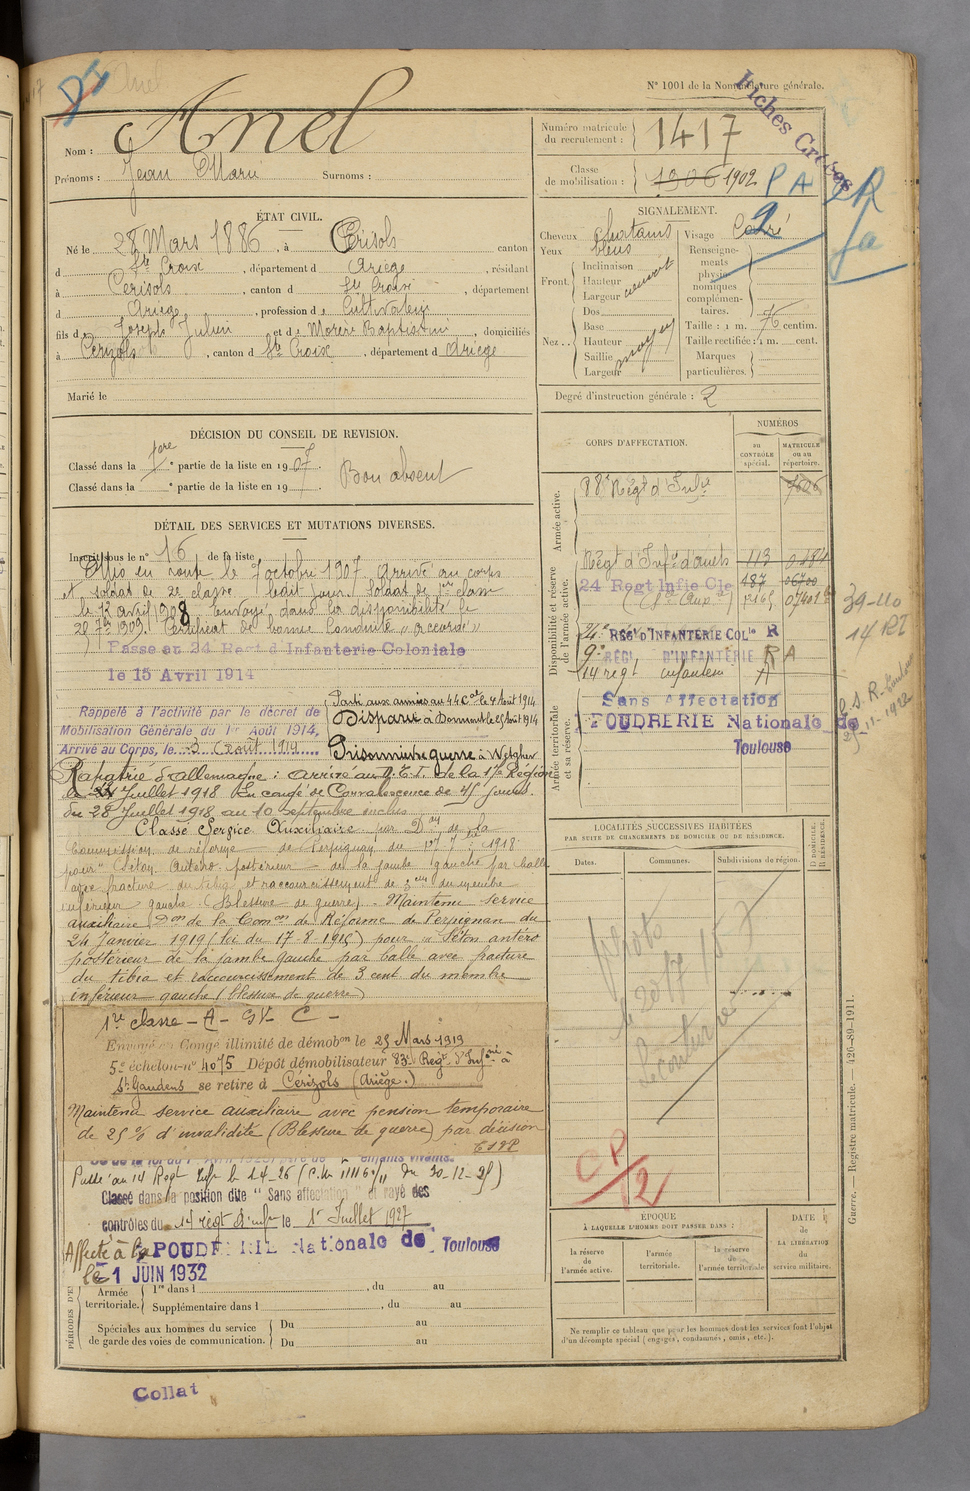 N° 1001 de la Nomenclature générale.
Fiches Croisées
Anel
Nom : Anel
Prénoms : Jean Marie Surnoms :
Numéro matricule du recrutement : 1417
Classe de mobilisation : 1906 1902
P A 2
ÉTAT CIVIL.
Né le 28 Mars 1886, à Cérisols canton
d Ste Croix, département d Ariège, résidant
à Cerisols, canton d Ste Croix, département
d Ariège, profession de Cultivateur
fils de Joseph Julien et de Morère Baptistine, domiciliés
à Cerizols, canton d Ste Croix, département d Ariège
Marié le
SIGNALEMENT.
Cheveux chatains
Yeux bleus
Front. Inclinaison
Hauteur
Largeur
Nez .. Dos
Base
Hauteur
Saillie
Largeur
moyen
Visage Carré
Renseignements physionomiques complémentaires.
Taille : 1 m. 76 centim.
Taille rectifiée : 1 m. cent.
Marques particulières.
Degré d'instruction générale : 2
DÉCISION DU CONSEIL DE REVISION.
Classé dans la 1ere partie de la liste en 1907.
Classé dans la e partie de la liste en 19 .
Bon absent
DÉTAIL DES SERVICES ET MUTATIONS DIVERSES.
Inscrit sous le n° 16 de la liste
Mis en route le 7 octobre 1907. Arrivé au corps
et soldat de 2e classe ledit jour. Soldat de 1ere classe
le 12 avril 1908 Envoyé dans la disponibilité le
Certificat de bonne Conduite "accordé"
Passé au 24 Regt d'Infanterie Coloniale
le 15 Avril 1914
Rappelé à l'activité par le décret de
Mobilisation Générale du 1er Août 1914,
Arrivé au Corps, le 3 Août 1914
Parti aux armées au 44 Cal le 4 Août 1914
Disparu à
Prisonnier de guerre à
Rapatrié d'allemagne : arrivé au D.E.I. de la 17e Région
Juillet 1918 En congé de Convalescence de 45 jours.
du 28 Juillet 1918 au 10 septembre inclus
Classé Service Auxiliaire par Don de la
Commission de réforme de Perpignan du 1918
pour "Séton antéro postérieur de la jambe gauche par balle
avec fracture du tibia et raccourcissement de 3 cm du membre
inférieur gauche (Blessure de guerre). Maintenu service
auxiliaire Don de la Comon de Réforme de Perpignan du
24 Janvier 1919 (loi du 17 8 1915) pour "Séton antéro
postérieur de la jambe gauche par balle avec fracture
du tibia et raccourcissement de 3 cent du membre
inférieur gauche (blessure de guerre)
1re classe - A - SV - C -
Envoyé en Congé illimité de démobon le 25 Mars 1919
5e échelon n° 4075 Dépôt démobilisateur 83e Regt d'Infrie à
St Gaudens se retire à Cérizols (Ariège.)
Maintenu service auxiliaire avec pension temporaire
de 25 % d'invalidité (Blessure de guerre) par décision
Passé au 14 Regt Inf le 1-4-26 (C.M. 11116 /11 du 30-12-25)
Classé dans la position dite "Sans affectation" et rayé des
contrôles du 14 régt d'inf le 1er Juillet 1927
Affecté à la POUDRERIE Nationale de Toulouse
le 1 JUIN 1932
PÉRIODES D'EX
Armée territoriale. 1re dans l , du au
Supplémentaire dans l , du au
Spéciales aux hommes du service de garde des voies de communication. Du au
Du au
Collat
CORPS D'AFFECTATION.
NUMÉROS
au CONTRÔLE spécial.
MATRICULE ou au répertoire.
Armée active.
88e Régt d'Infie 7606
Disponibilité et réserve de l'armée active.
Régt d'Infie 113
24 Regt Infie Cle 487 06700
24e RÉGt D'INFANTERIE COLle R
9e RÉGI D'INFANTERIE R A
14 regt infanterie A
Armée territoriale et sa réserve.
Sans Affectation
POUDRERIE Nationale de
Toulouse
14 RI
LOCALITÉS SUCCESSIVES HABITÉES
PAR SUITE DE CHANGEMENTS DE DOMICILE OU DE RÉSIDENCE.
Dates. Communes. Subdivisions de région.
D DOMICILE. R RÉSIDENCE.
CP/12
ÉPOQUE
À LAQUELLE L'HOMME DOIT PASSER DANS :
la réserve de l'armée active.
l'armée territoriale.
la réserve de l'armée territoriale
DATE DE LA LIBÉRATION du service militaire.
Ne remplir ce tableau que pour les hommes dont les services font l'objet
d'un décompte spécial (engagés, condamnés, omis, etc.).
Guerre. — Registre matricule. — 426-89-1911.